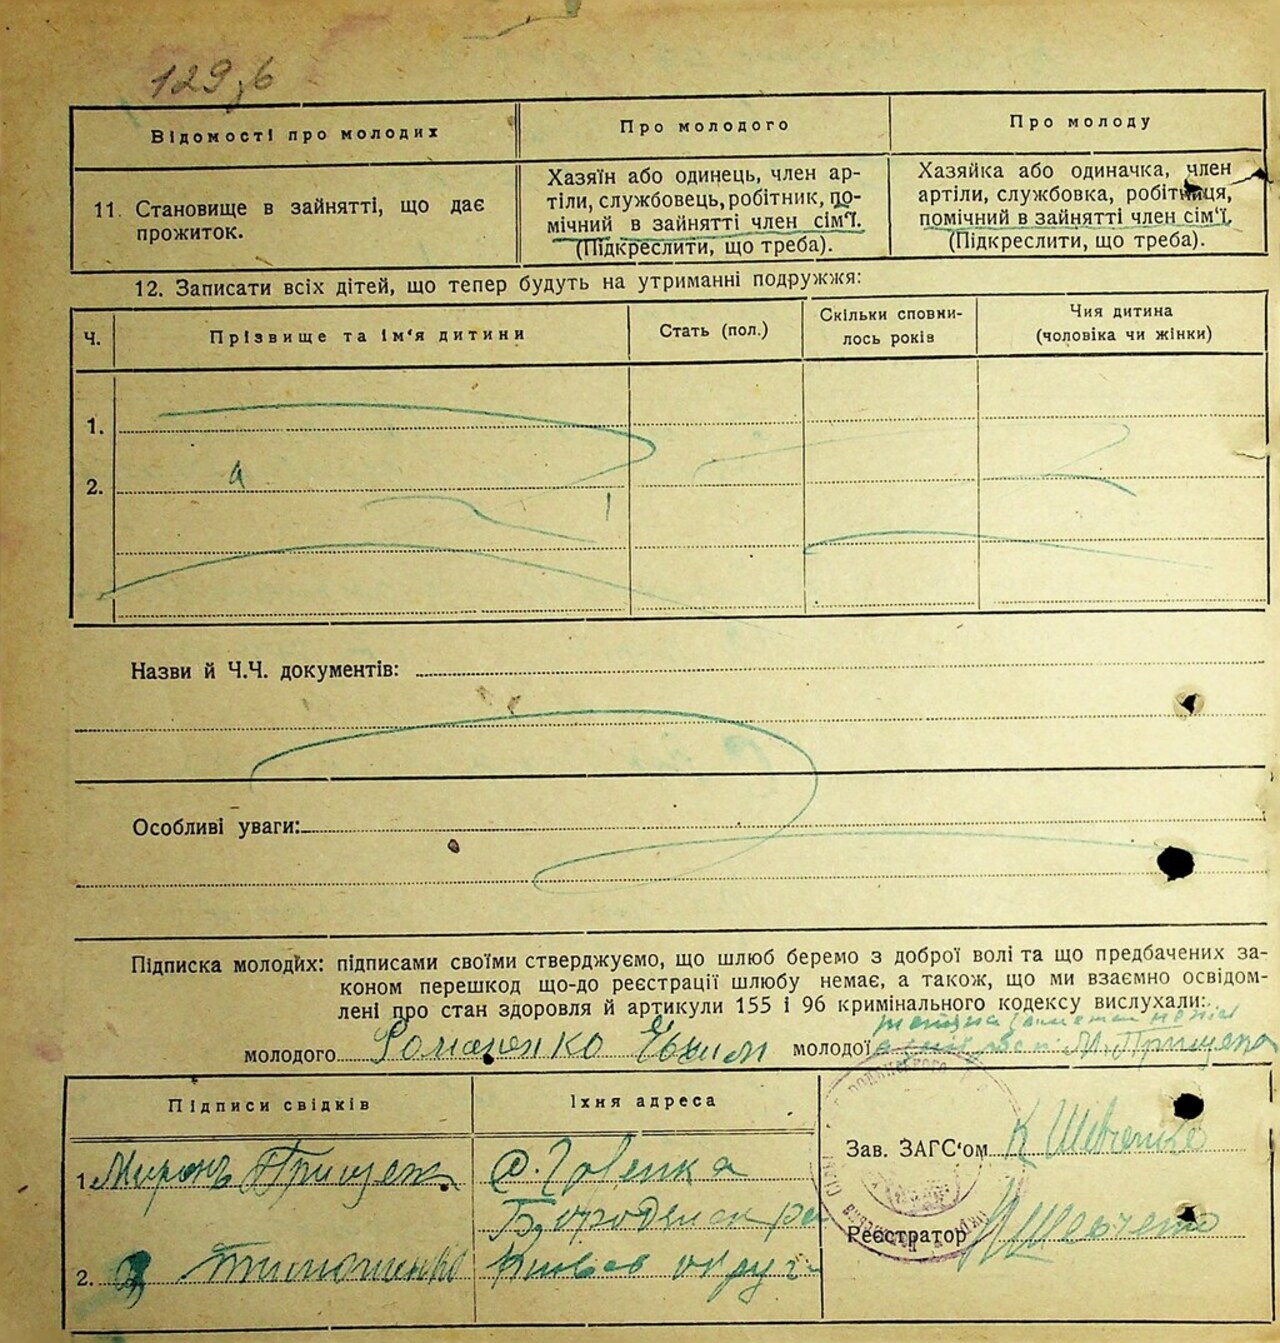 Відомості про молодих
Про молодого
Про молоду
11. Становище в зайнятті, що дає
прожиток.
Хазяїн або одинець, член ар-
тіли, службовець, робітник, по-
мічний в зайнятті член сім'ї.
(Підкреслити, що треба).
Хазяйка або одиначка, член
артіли, службовка, робітниця,
помічний в зайнятті член сім'ї.
(Підкреслити, що треба).
12. Записати всіх дітей, що тепер будуть на утриманні подружжя:
Ч.
Прізвище та ім'я дитини
Стать (пол.)
Скільки сповни-
лось років
Чия дитина
(чоловіка чи жінки)
1.
2.
Назви й Ч.Ч. документів:
Особливі уваги:
Підписка молодих: підписами своїми стверджуємо, що шлюб беремо з доброї волі та що предбачених за-
коном перешкод що-до реєстрації шлюбу немає, а також, що ми взаємно освідом-
лені про стан здоровля й артикули 155 і 96 кримінального кодексу вислухали:
молодого Романенко Євхим молодої М. Прищепа
Підписи свідків
Їхня адреса
1. Миронъ Прищеп
с.
2. Тимошенко
округ
Зав. ЗАГС'ом К Шевченко
Реєстратор Шевченко